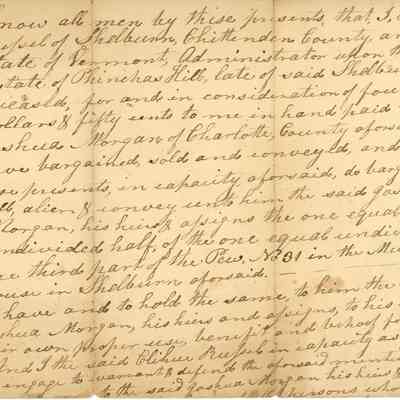 now all men by these presents, that I,
ussel of Shelburn, Chittenden County, an
tate of Vermont, Administrator upon th
state of Phinehas Hill, late of said Shelbur
eceased, for and in consideration of fou
ollars & fifty cents to me in hand paid
oshua Morgan of Charlotte, County afors
ve bargained, sold and conveyed, and
se presents, in capacity aforsaid, do barg
ll, alien, & convey unto him the said Jos
Morgan, his hiers & assigns the one equal
undivided half, of the one equal undi
ee third part of the Pew, No 31 in the Me
ouse in Shelburn aforsaid.
have and to hold the same, to him the
shua Morgan, his hiers and assigns, to his
ir own proper use, benefit and behoof fo
And I the said Elihue Russel in capacity as
engage to warrant & defend the aforsaid ment
to the said Joshua Morgan his hiers &
persons who